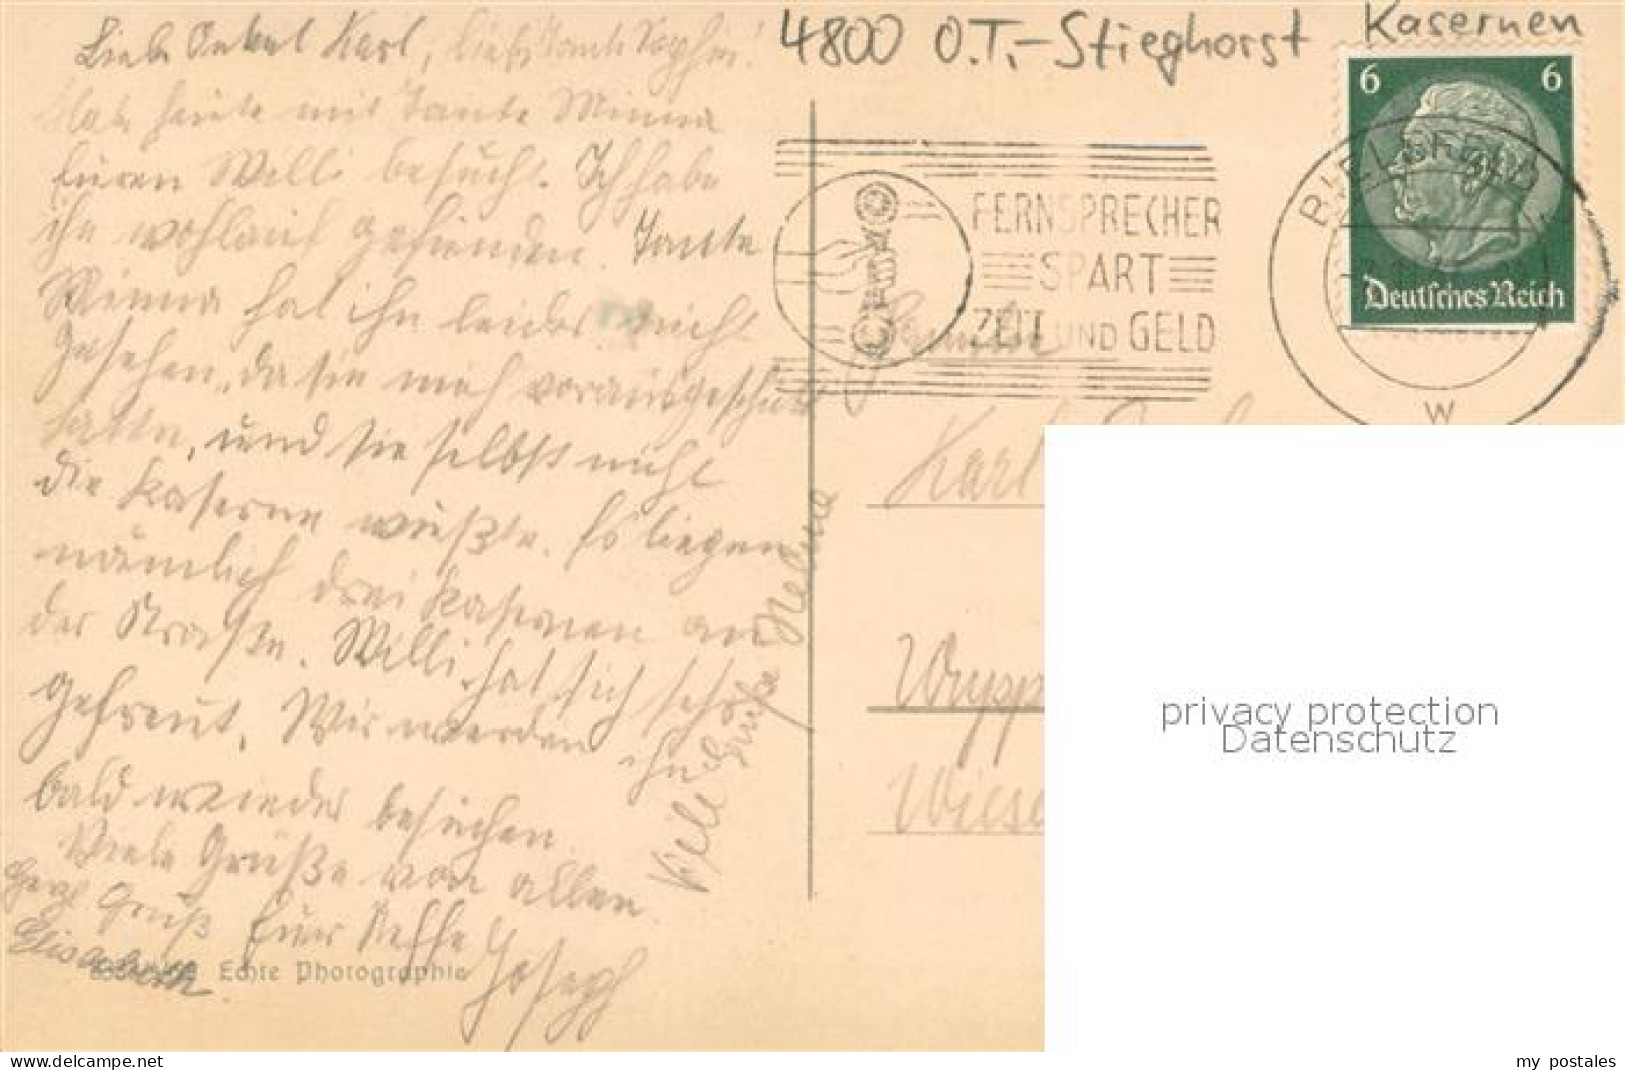 4800 O.T.-Stieghorst Kasernen
Liebe Onkel Karl, liebe Tante Sophie!
Habe heute mit Tante Minna
Euren Willi besucht. Ich habe
ihn wohlauf gefunden. Tante
Minna hat ihn leider nicht
gesehen, da sie mich vorausgeschickt
hatte, und sie selbst nicht
die Kaserne wußte. Es liegen
nämlich drei Kasernen an
der Straße. Willi hat sich sehr
gefreut. Wir werden ihn
bald wieder besuchen.
Viele Grüße von allen.
Euer Neffe Joseph
Gruß
Elisabeth
Viele Grüße
Echte Photographie
6 6
Deutsches Reich
BIELEFELD
W
FERNSPRECHER
SPART
ZEIT UND GELD
Familie
Karl
Wupp
Wiese
privacy protection
Datenschutz
www.delcampe.net
my_postales